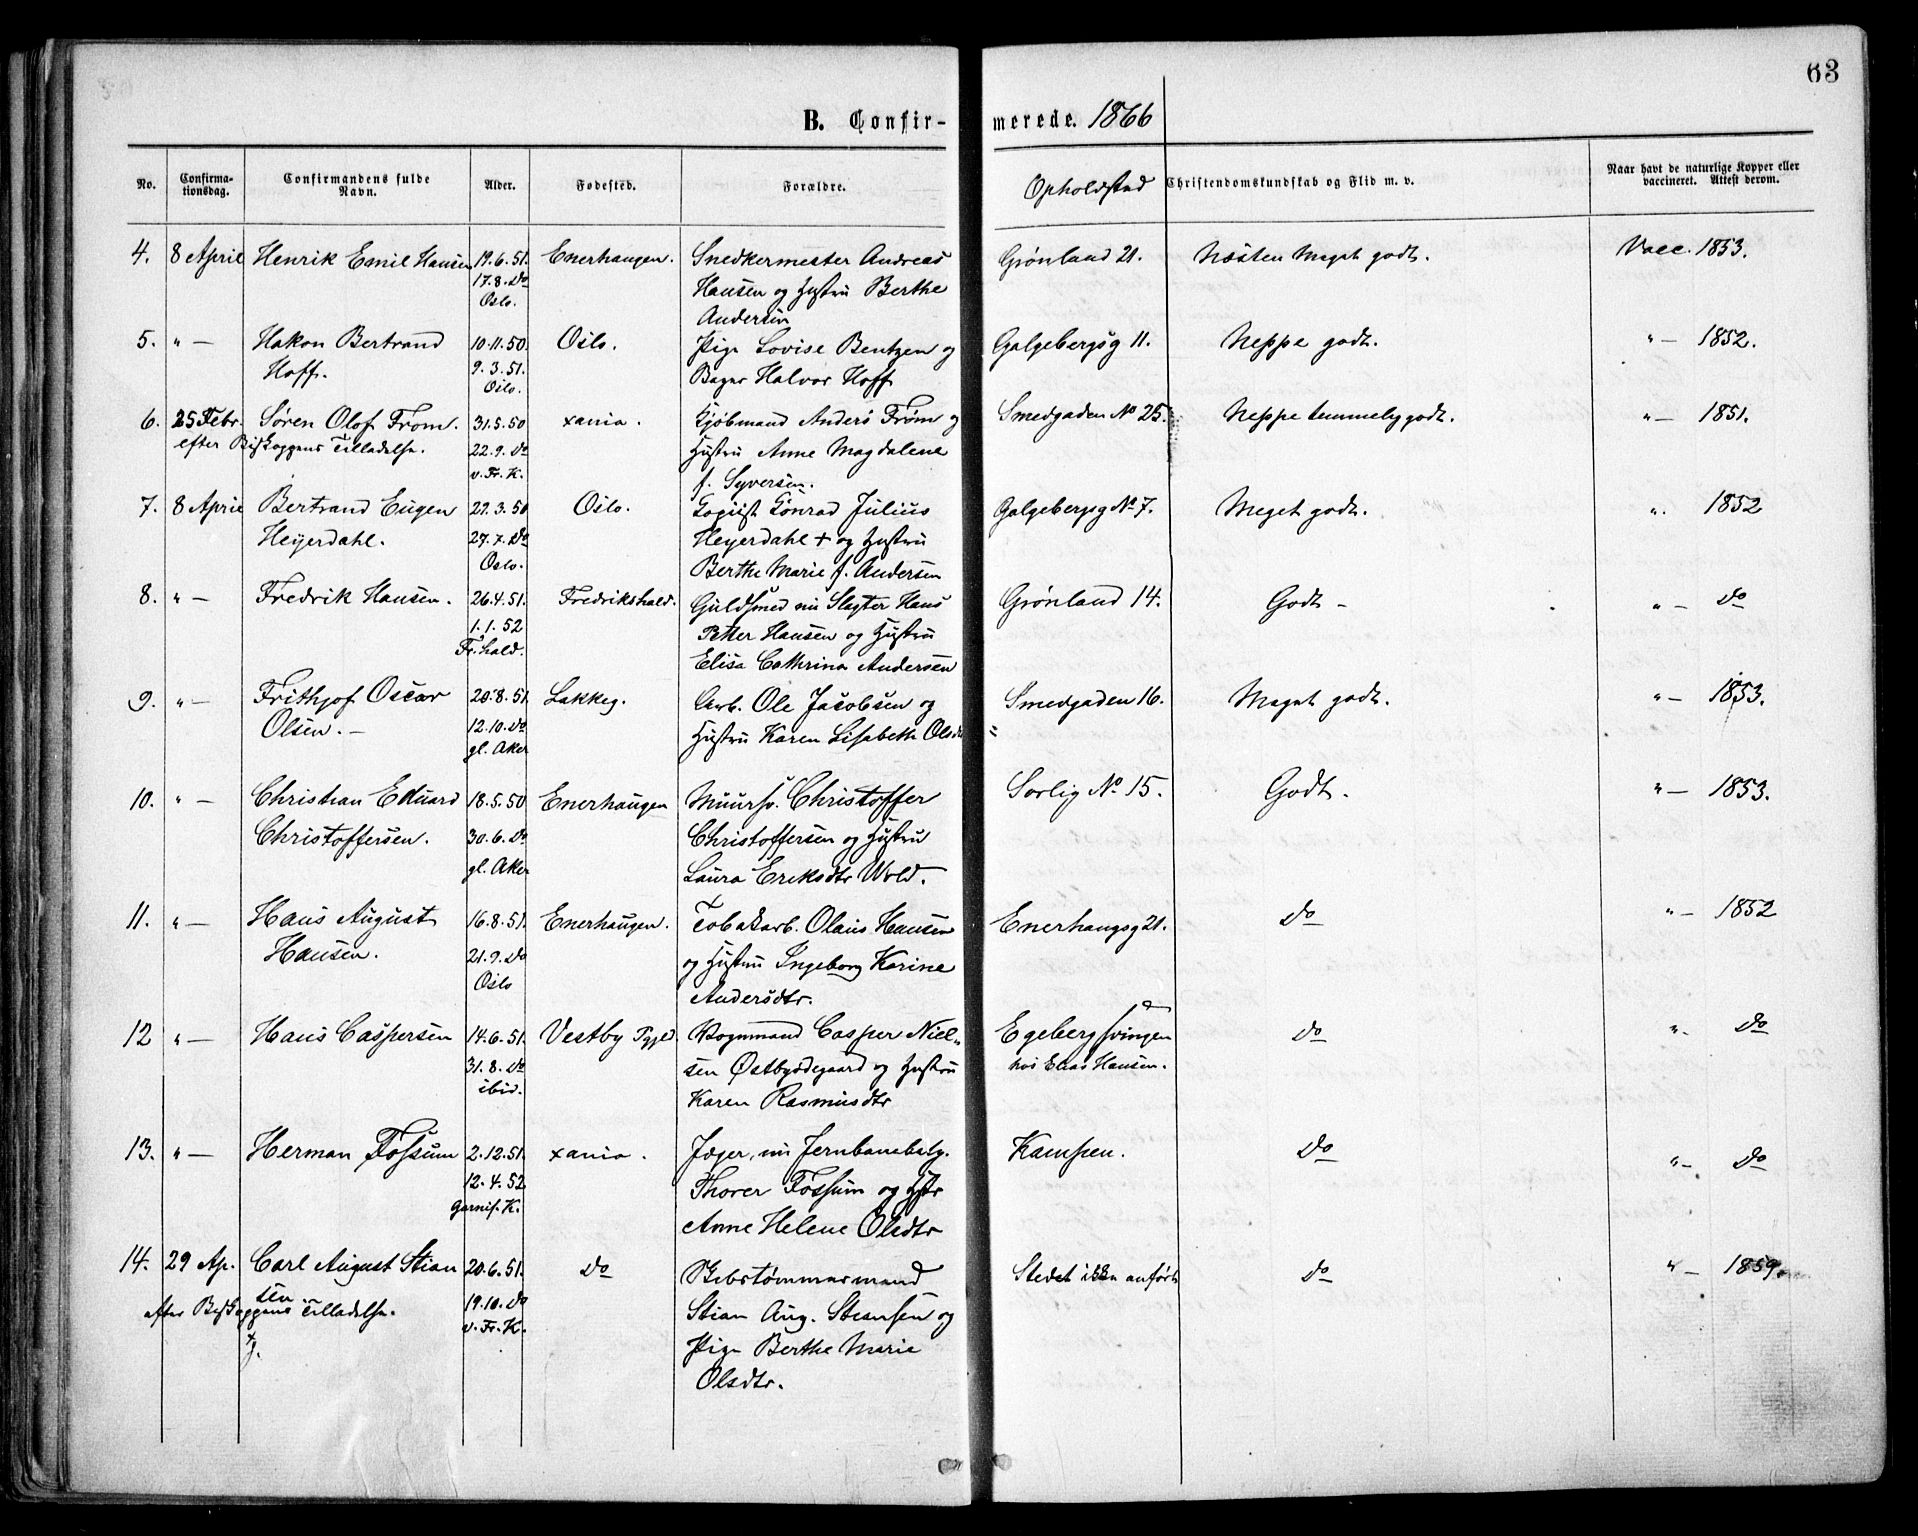 63
B. Confirmerede. 1866
No.
Confirma-
tionsdag.
Confirmandens fulde
Navn.
Alder.
Fødested.
Forældre.
Opholdsted
Christendomskundskab og Flid m. v.
Naar havt de naturlige Kopper eller
vaccineret. Attest derom.
4. 8 April Henrik Emil Hansen 19.6.51. Enerhaugen. Snedkermester Andreas Grønland 21. Næsten Meget godt. Vacc. 1853.
17.8. Do Hansen og Hustru Berthe
Oslo. Andersen
5. " — Hakon Bertrand 10.11.50. Oslo. Pige Lovise Bentzen og Galgebergsg 11. Neppe godt. " — 1852.
Hoff. 9.3.51. Bager Halvor Hoff
Oslo.
6. 25 Febr. Søren Olof From. 31.5.50 xania. Kjøbmand Anders Frøm og Smedgaden No 25. Neppe temmelig godt. " — 1851.
efter Biskoppens Tilladelse. 22.9. Do Hustru Anne Magdalene
v. Fr. K. f. Syversen.
7. 8 April Bertrand Eugen 22.3.50 Oslo. Conrad Julius Galgebergsg No 7. Meget godt. ". 1852
Heyerdahl. 27.7. Do Heyerdahl + og Hustru
Oslo. Berthe Marie f. Andersen
8. " — Fredrik Hansen. 26.4.51. Fredrikshald. Guldsmed nu Slagter Hans Grønland 14. Godt — " — Do
1.1.52 Petter Hansen og Hustru
Fr.hald. Elisa Cathrina Andersen
9. " — Frithjof Oscar 20.8.51. Lakkeg. Arb. Ole Jacobsen og Smedgaden 16. Meget godt. " — 1853.
Olsen. — 12.10. Do Hustru Karen Lisabeth Olsdtr "
gl. Aker
10. " — Christian Eduard 18.5.50 Enerhaugen Muursv. Christoffer Sorlig No 15. Godt. " — 1853.
Christoffersen. 30.6. Do Christoffersen og Hustru
gl. Aker Laura Eriksdtr Wold.
11. " — Hans August 16.8.51. Enerhaugen. Tobakarb. Olaus Hansen Enerhaugsg 21. Do " — 1852
Hansen. 21.9. Do og Hustru Ingeborg Karine
Oslo Andersdtr.
12 " — Hans Caspersen 14.6.51. Vestby Pgjld. Vognmand Casper Niel- Egebergsvingen Do ". Do
31.8. Do sen Østbydegaard og Hustru hos Elias Hansen.
ibid. Karen Rasmusdtr
13. " — Herman Fossum 2.12.51. xania. Jæger, nu Jernbanebetj. Kampen. Do " — Do
12.4.52 Thorer Fossum og Hstr
Garnis. K. Anne Helene Olsdtr
14. 29 Ap. Carl August Stian 20.6.51. Do Rebstømmermand Stedet ikke anført Do " — 1859.
sen
efter Biskoppens Tilladelse. 19.10. Do Stian Aug. Stiansen og
v. Fr. K. Pige Berthe Marie
Olsdtr.